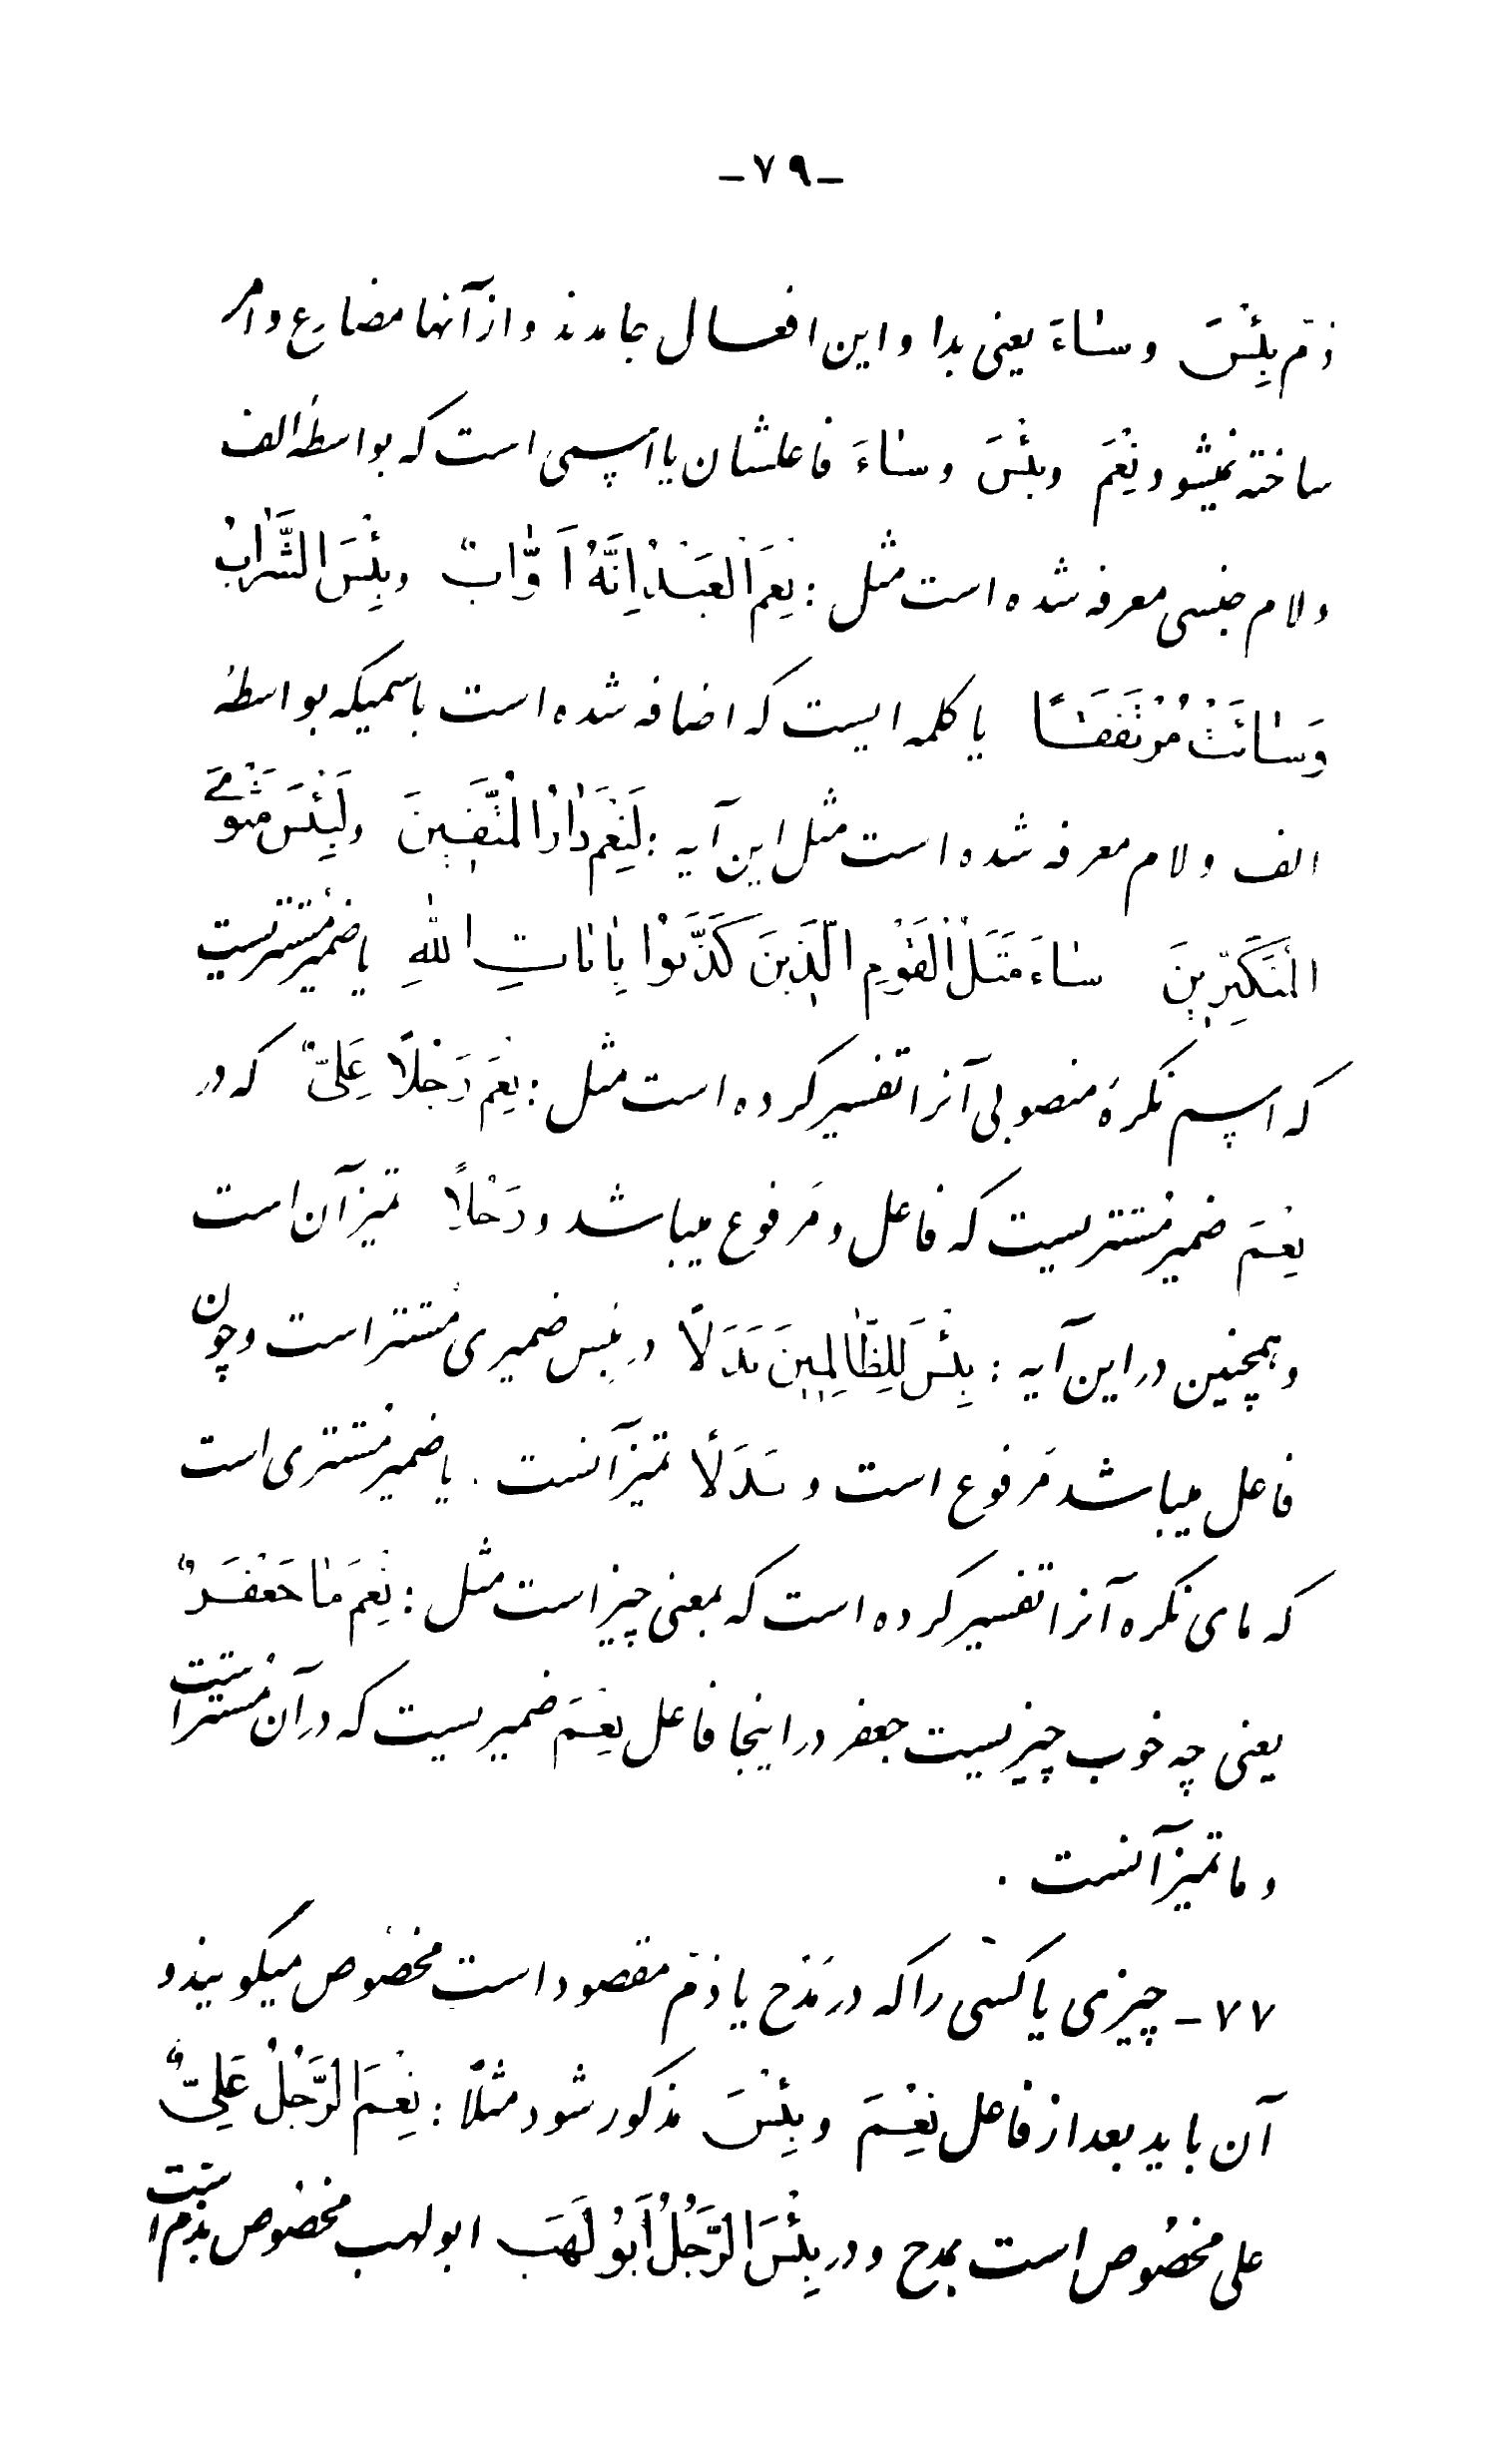 -۷۹-
ذم بِئْسَ وسٰاءَ یعنی بدا و این افعال جامدند و از آنها مضارع و امر
ساخته نمیشود نِعْمَ وبِئْسَ وسٰاءَ فاعلشان یا اسمی است که بواسطهٔ الف
ولام جنسی معرفه شده است مثل : نِعْمَ الْعَبْدُ اِنَّهُ اَوّٰابٌ وبِئْسَ الشَّرٰابُ
وَسٰائَتْ مُرْتَفَقًا یا کلمه ایست که اضافه شده است باسمیکه بواسطهٔ
الف ولام معرفه شده است مثل این آیه : لَنِعْمَ دٰارُ الْمُتَّقٖینَ ولَبِئْسَ مَثْوَی
الْمُتَکَبِّرٖینَ سٰاءَ مَثَلُ الْقَوْمِ الَّذٖینَ کَذَّبُوا بِاٰیاتِ اللّٰهِ یا ضمیر مُستتریست
که اسم نکرهٔ منصوبی آنرا تفسیر کرده است مثل : نِعْمَ رَجُلاً عَلِیٌّ که در
نِعْمَ ضمیر مُستتریست که فاعل و مَرفوع میباشد و رَجُلاً تمیز آن است
و همچنین در این آیه : بِئْسَ لِلظّٰالِمٖینَ بَدَلاً در بِئس ضمیری مُستتر است و چون
فاعل میباشد مَرفوع است و بَدَلاً تمیز آنست . یا ضمیر مُستتری است
که مای نکره آنرا تفسیر کرده است که بمعنی چیز است مثل : نِعْمَ مٰا جَعْفَرٌ
یعنی چه خوب چیزیست جعفر در اینجا فاعل نِعْمَ ضمیریست که در آن مُستتر است
و ما تمیز آنست .
۷۷- چیزی یا کسی را که در مَدْح یا ذمّ مقصود است مخصُوص میگویند و
آن باید بعد از فاعل نِعْمَ و بِئْسَ مذکور شود مثلاً : نِعْمَ الرَّجُلُ عَلِیٌّ
علی مخصُوص است بمدح و در بِئْسَ الرَّجُلُ أَبُو لَهَبَ ابولهب مخصُوص بذم است